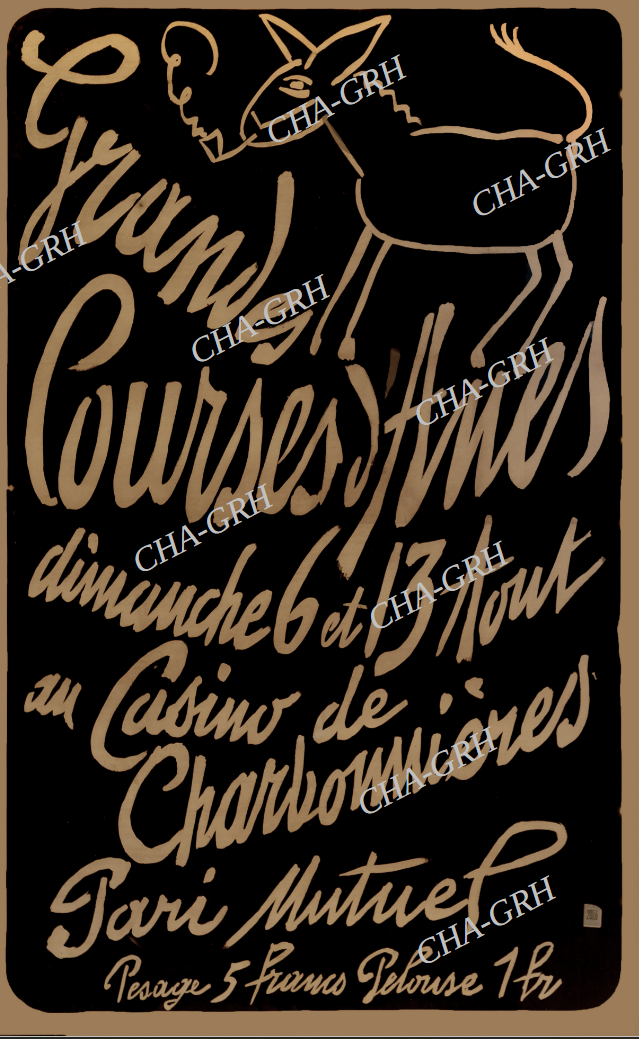 Grandes
Courses d'Anes
dimanche 6 et 13 Aout
au Casino de
Charbonnières
Pari Mutuel
Pesage 5 francs Pelouse 1 fr
CHA-GRH
CHA-GRH
CHA-GRH
CHA-GRH
CHA-GRH
CHA-GRH
CHA-GRH
CHA-GRH
CHA-GRH